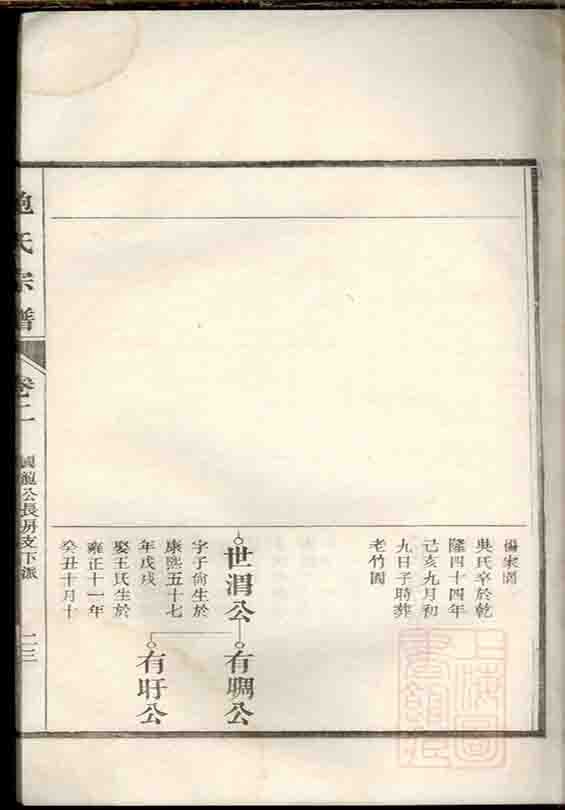 楊家園
吳氏卒於乾
隆四十四年
己亥九月初
九日子時葬
老竹園
世渭公
有啁公
有吁公
字子尙生於
康熙五十七
年戊戌
娶王氏生於
雍正十一年
癸丑十月十
鮑氏宗譜
卷二
國龍公長房支下派
二三
上海圖書館藏